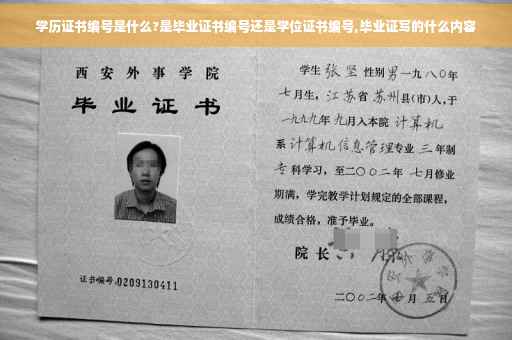 学历证书编号是什么?是毕业证书编号还是学位证书编号,毕业证写的什么内容
西安外事学院
毕业证书
证书编号:0209130411
学生 张坚 性别 男 一九八〇年
七月生，江苏省 苏州 县(市)人,于
一九九九年 九月入本院 计算机
系 计算机信息管理 专业 三 年制
专 科学习，至二〇〇二年 七月修业
期满，学完教学计划规定的全部课程，
成绩合格，准予毕业。
院长
二〇〇二年 月 五 日